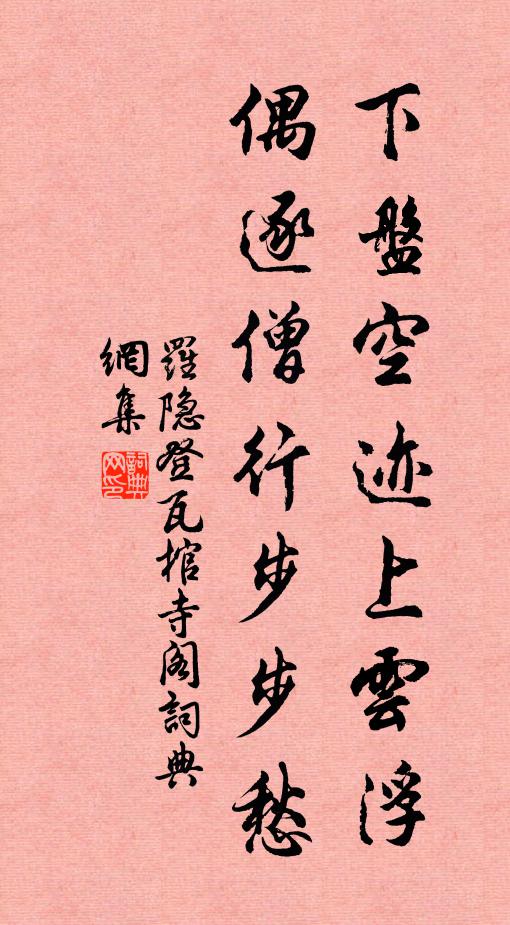 下盤空迹上雲浮
偶逐僧行步步愁
羅隐登瓦棺寺阁詞典
網集
詞典網印